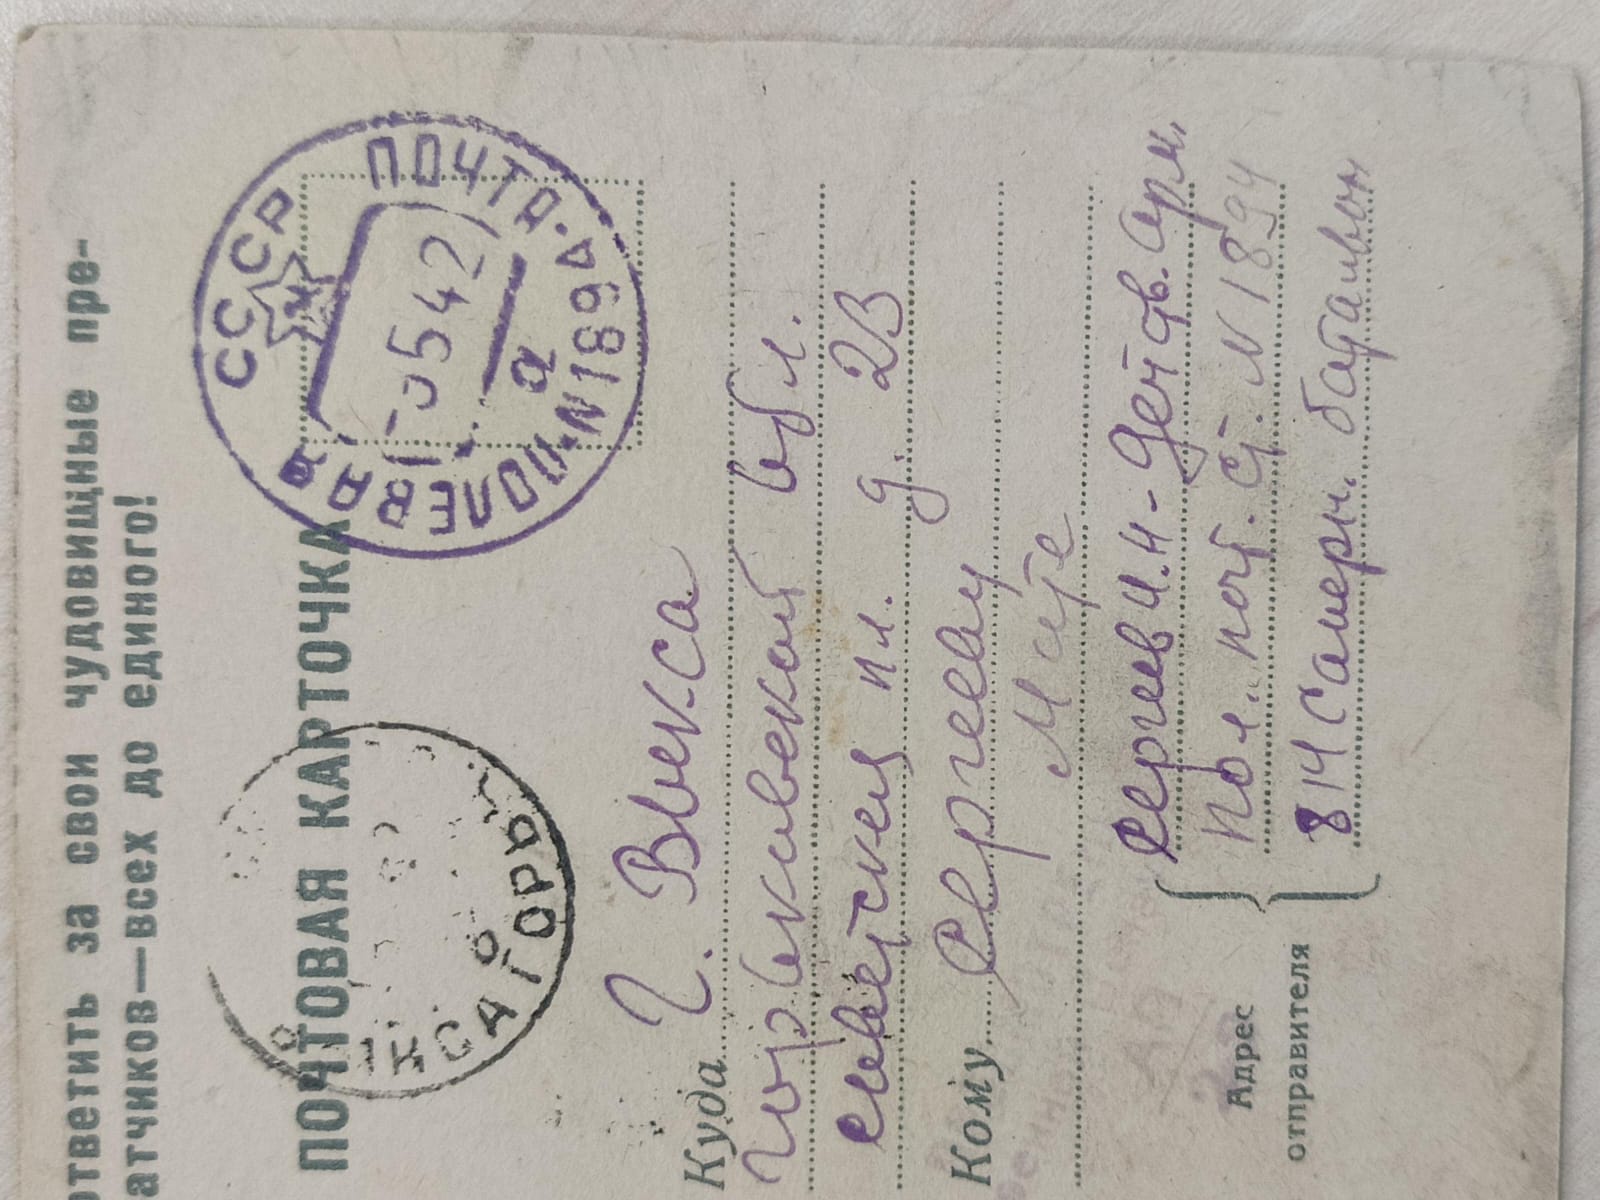 ответить за свои чудовищные пре-
атчиков—всех до единого!
ПОЧТОВАЯ КАРТОЧКА
СССР
ПОЛЕВАЯ ПОЧТОВ.
1 5 42
а
N 189
КСА ГОРЬК
Куда г. Выкса
Горьковской обл.
советская пл. д. 2В
Кому Сергееву
Мите
Адрес отправителя
Сергеев И.Н - Действ. арм.
Пол. почт. ст. N 1894
814 Саперн. батальон